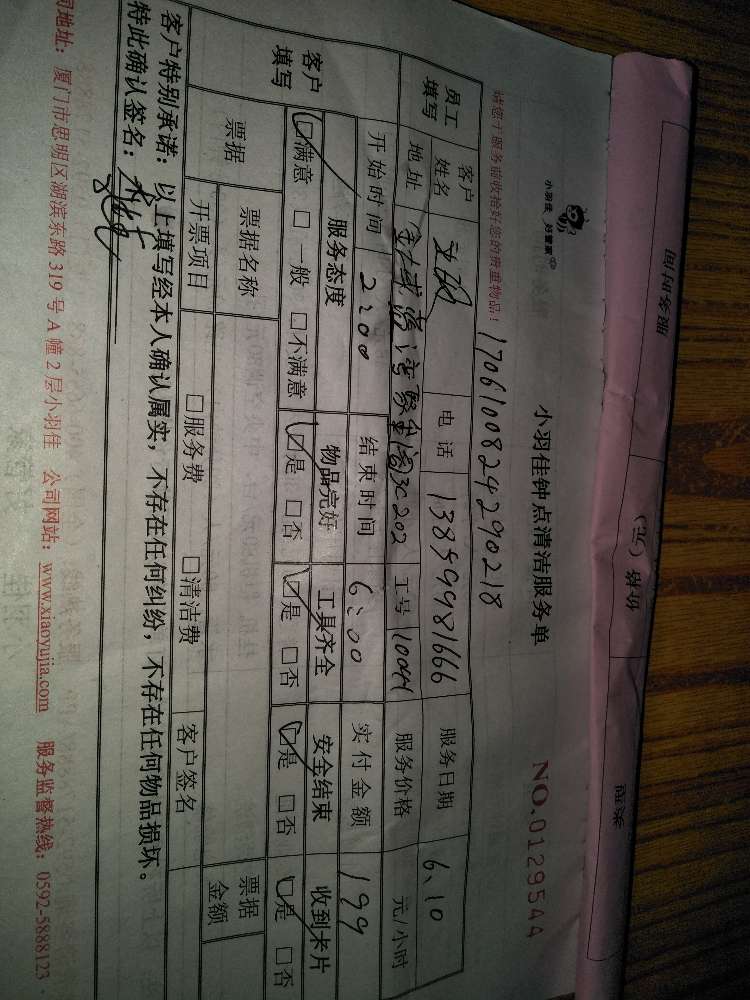 小羽佳 好管家
小羽佳钟点清洁服务单
NO.0129544
请您于服务前收拾好您的贵重物品！
1706100824290218
员工填写 客户姓名 电话 13859981666 服务日期 6、10
地址 3C202 工号 10044 服务价格 元/小时
开始时间 2200 结束时间 6:00 实付金额 199
客户填写 服务态度 物品完好 工具齐全 安全结束 收到卡片
☑满意 □一般 □不满意 ☑是 □否 ☑是 □否 ☑是 □否 ☑是 □否
票据 票据名称 票据金额
开票项目 □服务费 □清洁费 客户签名
客户特别承诺：以上填写经本人确认属实，不存在任何纠纷，不存在任何物品损坏。
特此确认签名：
司地址：厦门市思明区湖滨东路319号A幢2层小羽佳 公司网站：www.xiaoyujia.com 服务监督热线：0592-5888123